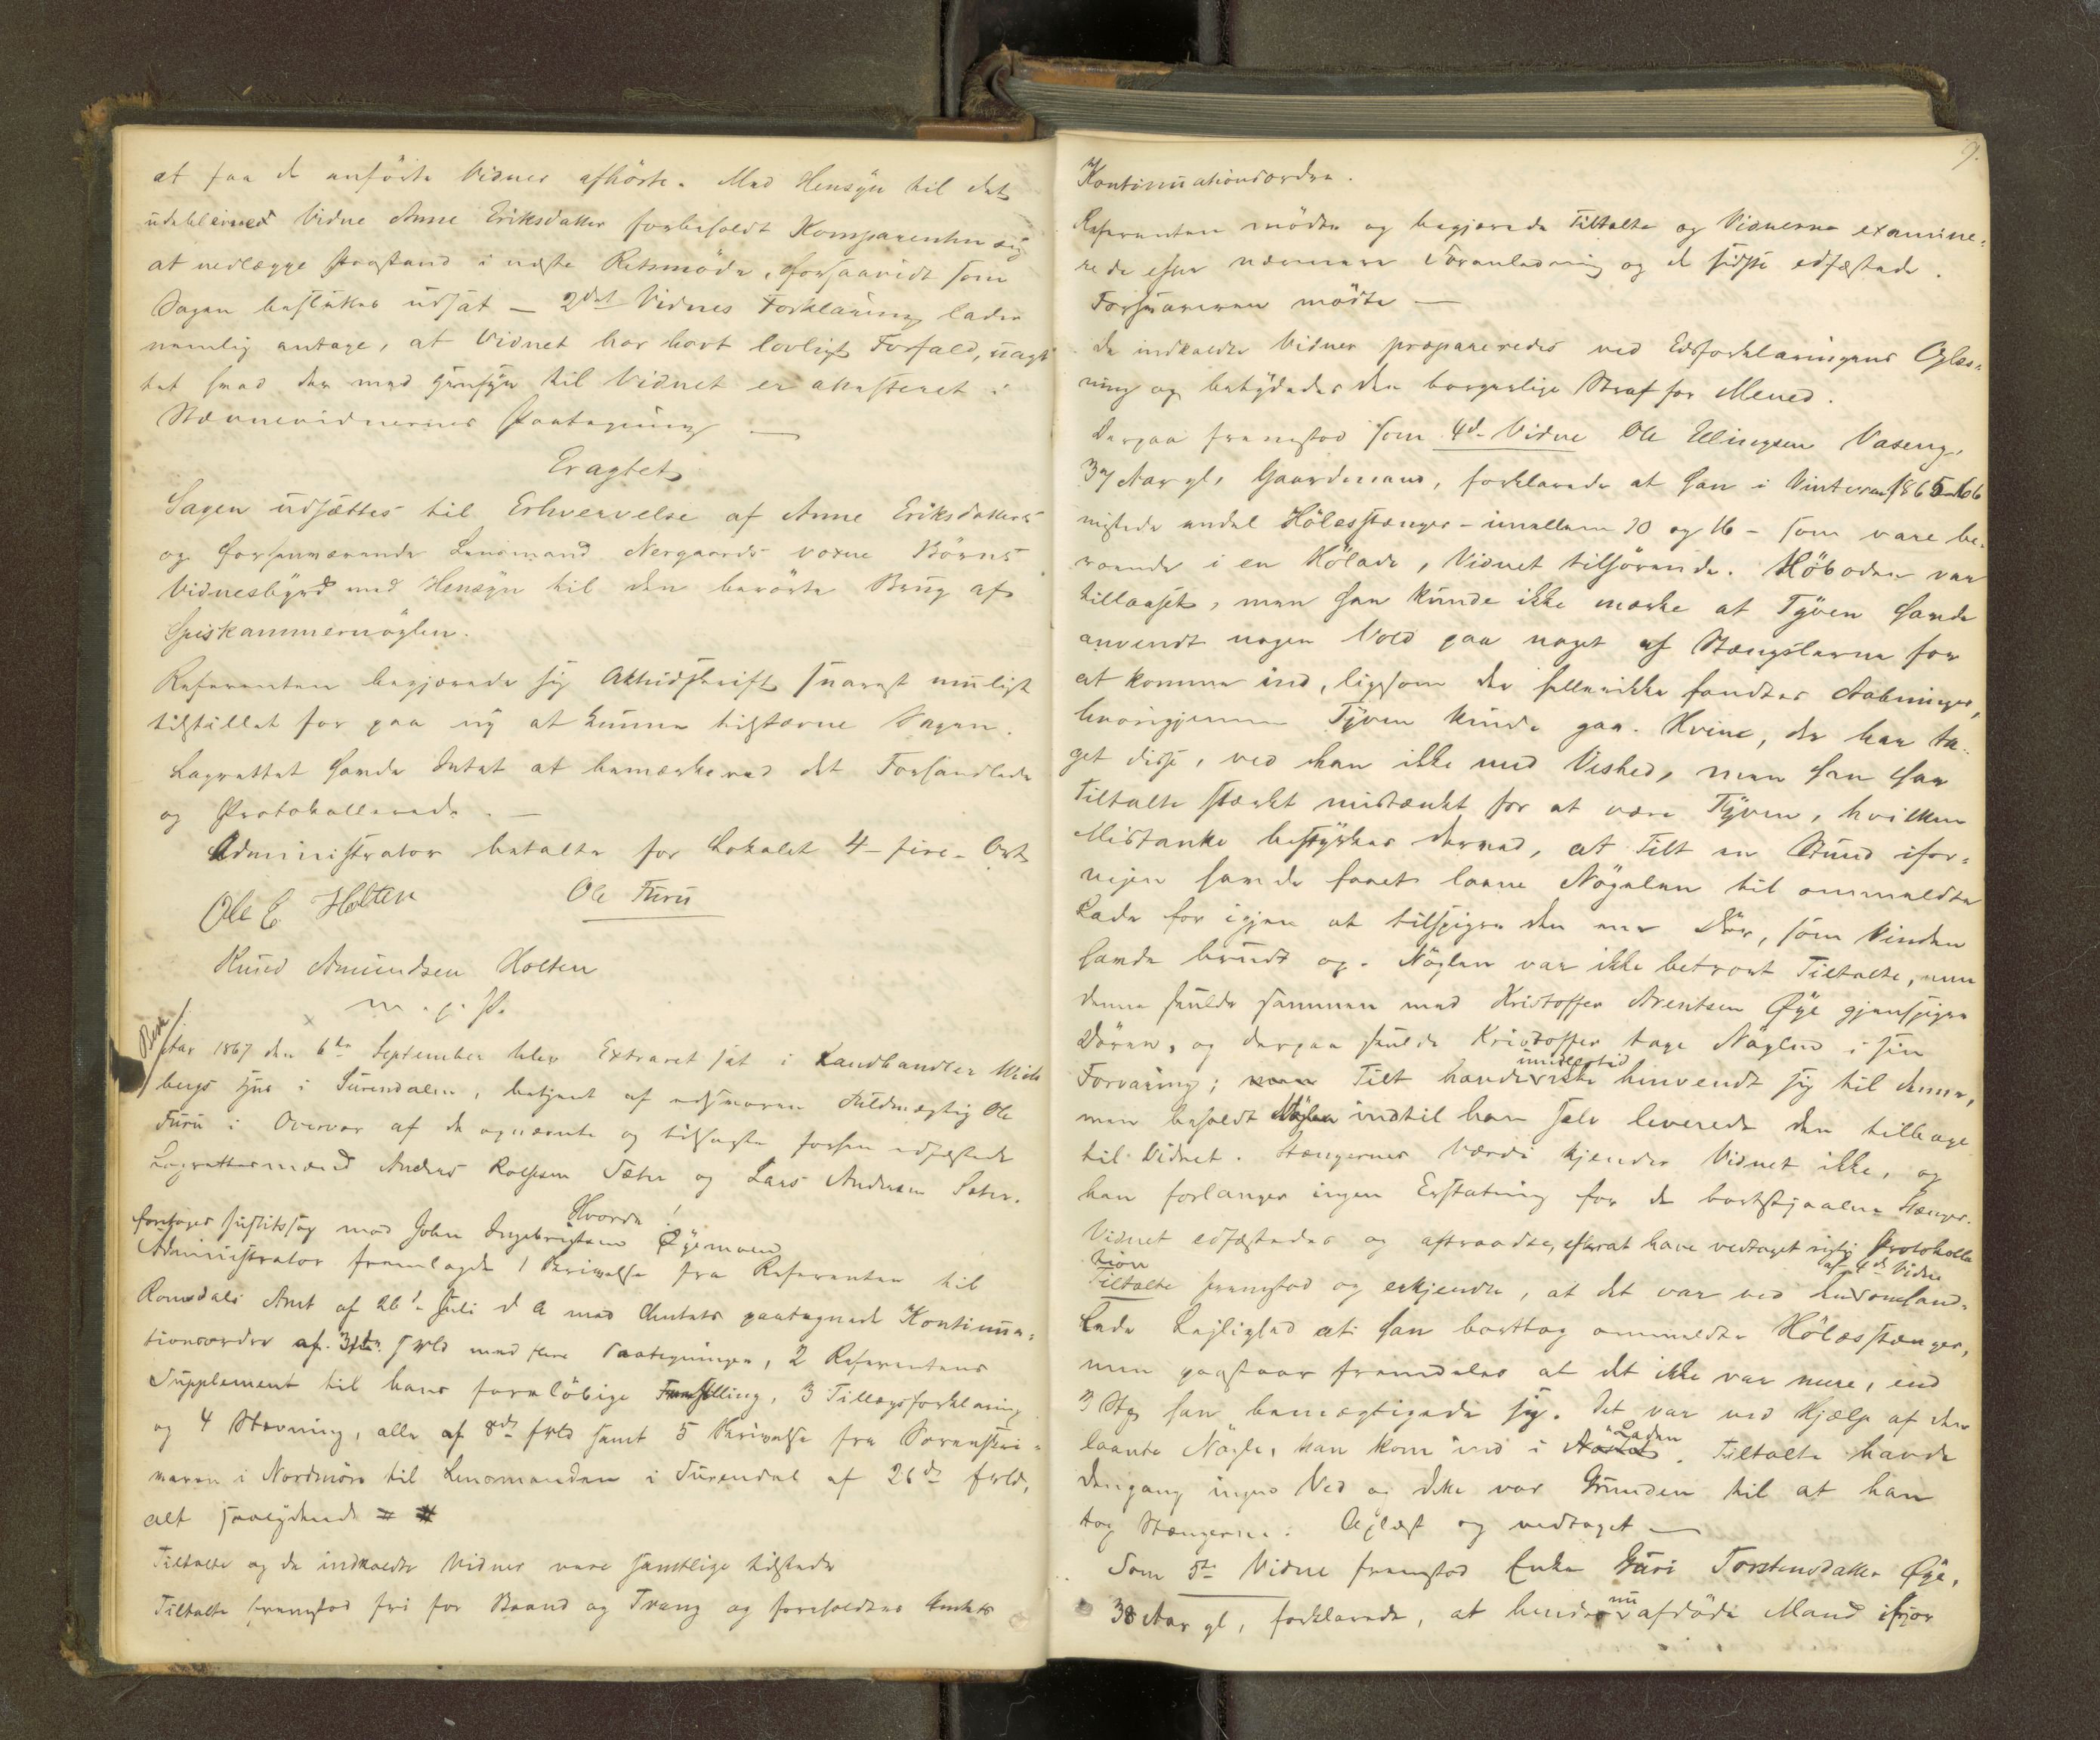 at faa de anförte Vidner afhörte. Med Hensÿn til det
udeblevne Vidne Anne Eriksdatter forbeholdt Komparenten sig
at nedlægge Paastand i næste Retsmöde, forsaavidt som
Sagen besluttes udsat – 2det Vidnes Forklaring lader
nemlig antage, at Vidnet har havt lovligt Forfald, uagt
tet hvad der med Hensÿn til Vidnet er attesteret i
Stævnevidnernes Paategning –
Eragtet
Sagen udsættes til Erhvervelse af Anne Eriksdatters
og forhenværende Lensmand Nergaards voxne Börns
Vidnesbÿrd med Hensÿn til den berörte Brug af
Spiskammernöglen.
Referenten begjærede sig Aktudskrift snarest muligt
tilstillet for paa nÿ at kunne tilstævne Sagen.
Lagrettet havde Intet at bemærke ved det Forhandlede
og Protokollerede. –
Administrator betalte for Lokalet 4 – fire – Ort
Ole E Holten Ole Furu
Knud Amundsen Holten
m. p. P.
Aar 1867 den 6te September blev Extraret sat i Landhandler
bergs Hus i Surendalen, betjent af edsvoren Fuldmægtig Ole
Furu i Overvær af de opnævnte og tilsagte forhen edfæstede
Lagrettesmænd Anders Rolfsen Sæter og Lars Andersen Sæter.
Hvorda!
foretoges Justitssag mod John Ingebrigtsen Øÿemoen
Administrator fremlagde 1 Skrivelse fra Referenten til
Romsdals Amt af 26' Juli d A med Amtets paategnede Kontinua-
tionsordre af 31te s M med flere Paategninger, 2 Referentens
Supplement til hans foreløbige Fremstilling, 3 Tillægsforklaring
og 4 Stevning, alle af 8de f M samt 5 Skrivelse fra Sorenskri-
veren i Nordmöre til Lensmanden i Surendal af 26de f M,
alt saalydende # #
Tiltalte og de indkaldte Vidner vare samtlige tilstede
Tiltalte fremstod fri for Baand og Tvang og foreholdtes Amtets
9.
Kontinuationsordre.
Referenten mödte og begjærede Tiltalte og Vidnerne examine-
rede efter nærmere Foranledning og de sidste edfæstede.
Forsvareren mödte –
De indkaldte Vidner præpareredes ved Edsforklaringens Oplæs-
ning og betÿdedes den borgerlige Straf for Mened.
Derpaa fremstod som 4de Vidne Ole Ellingsen Vaseng,
37 Aar gl, Gaardmand, forklarede at han i Vinteren 1865-66
mistede endel Hölæsstænger – imellem 10 og 16 – som vare be-
roende i en Hölade, Vidnet tilhörende. Höboden var
tillaaset, men han kunde ikke mærke at Tÿven havde
anvendt nogen Vold paa noget af Stængslerne for
at komme ind, ligesom der hellerikke fandtes Aabninger,
hvorigjennem Tÿven kunde gaa. Hvem, der har ta-
get disse, ved han ikke med Vished, men han har
Tiltalte stærkt mistænkt for at være Tÿven, hvilken
Mistanke bestÿrkes derved, at Tilt en Stund ifor-
vejen havde faaet laane Nögelen til ommeldte
Lade for igjen at tilspigre den ene Dör, som Vinden
havde brudt op. Nöglen var ikke betroet Tiltalte, men
denne skulde sammen med Kristoffer Arentsen Øÿe gjenspigre
Dören, og derpaa skulde Kristoffer tage Nöglen i sin
Forvaring; Tilt havde imidlertid ikke henvendt sig til denne,
men beholdt Nöglen indtil han selv leverede den tilbage
til Vidnet. Stængernes Værdi kjender Vidnet ikke, og
han forlanger ingen Erstatning for de bortstjaalne Stænger.
Vidnet edfæstedes og aftraadte, efterat have vedtaget rigtig Protokolla
tion
Tiltalte fremstod og erkjendte, at det var ved den af 4de Vidne omhand-
lede Lejlighed at han borttog ommeldte Hölæsstænger,
men paastaar fremdeles at det ikke var mere, end
3 Stk han bemægtigede sig. Det var ved Hjælp af den
laante Nögle, han kom ind i Laden. Tiltalte havde
dengang ingen Ved og dette var Grunden til at han
tog Stængerne. Oplæst og vedtaget –
Som 5te Vidne fremstod Enke Guri Torstensdatter Øÿe,
38 Aar gl, forklarede, at hendes nu afdöde Mand ifjor